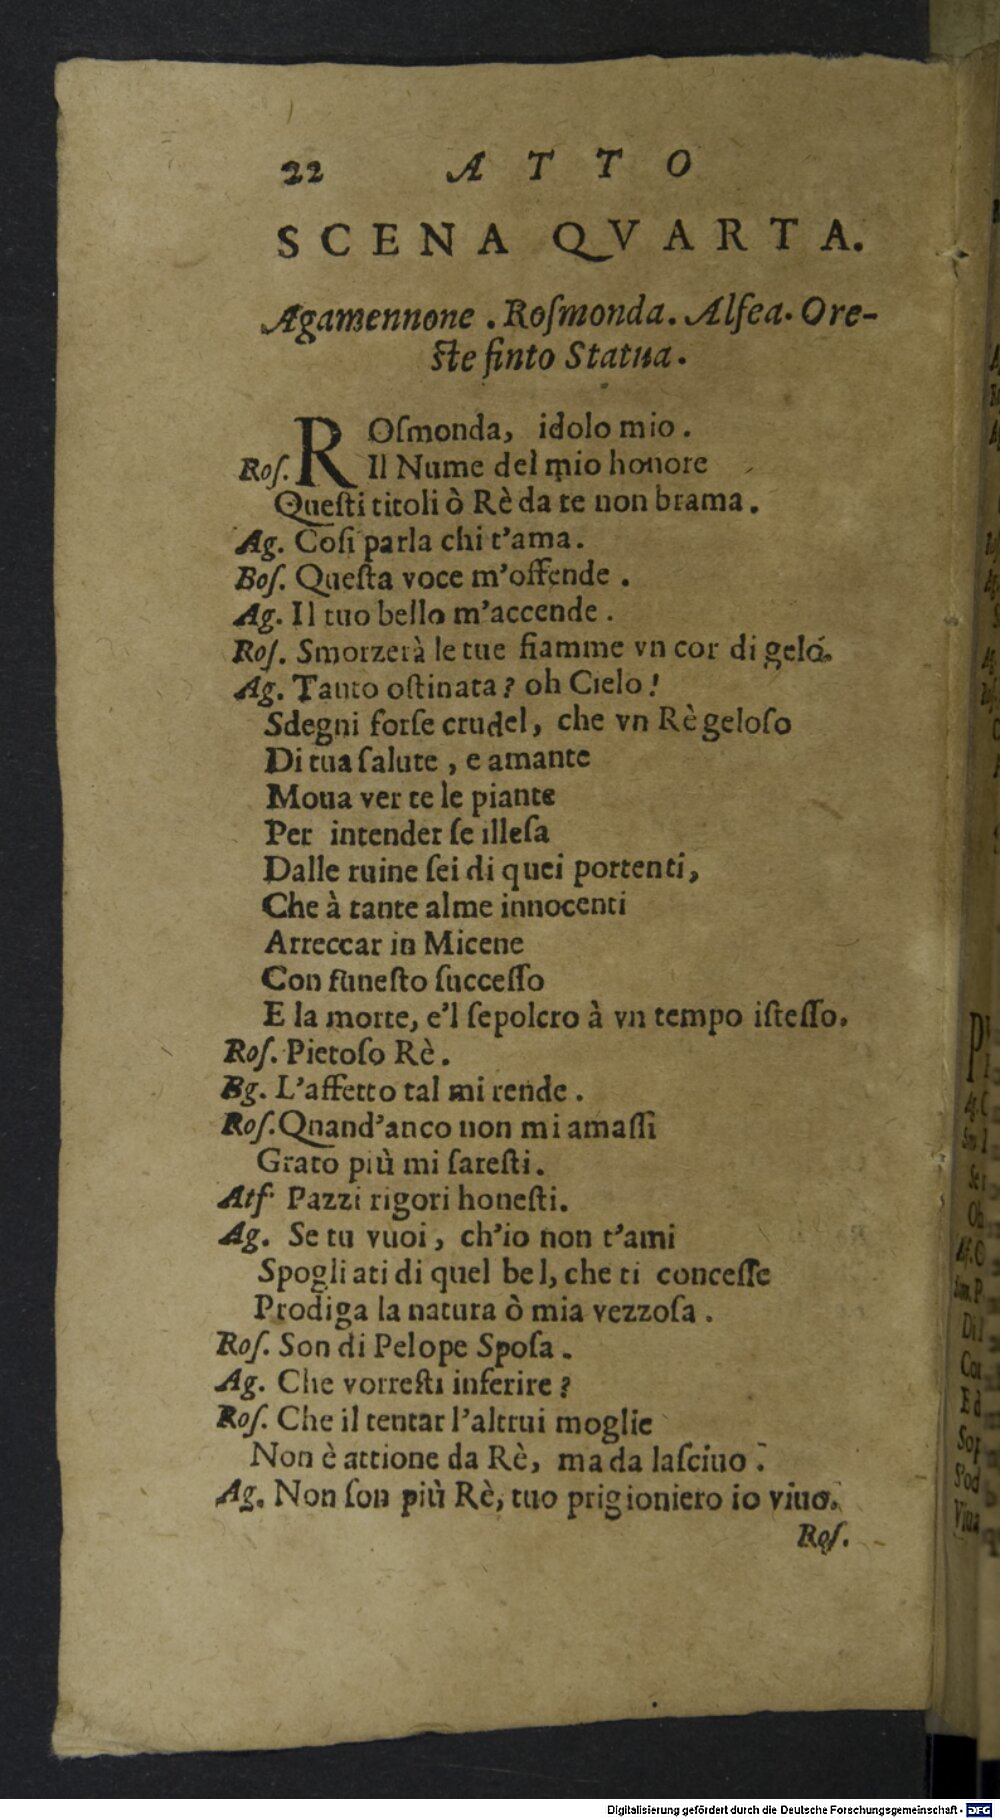 22 ATTO
SCENA QVARTA.
Agamennone . Roſmonda. Alfea. Ore-
ſte finto Statua.
ROſmonda, idolo mio .
Roſ. Il Nume del mio honore
Queſti titoli ò Rè da te non brama.
Ag. Coſi parla chi t'ama.
Boſ. Queſta voce m'offende .
Ag. Il tuo bello m'accende .
Roſ. Smorzerà le tue fiamme vn cor di gelo.
Ag. Tanto oſtinata? oh Cielo!
Sdegni forſe crudel, che vn Rè geloſo
Di tua ſalute , e amante
Moua ver te le piante
Per intender ſe illeſa
Dalle ruine ſei di quei portenti,
Che à tante alme innocenti
Arreccar in Micene
Con funeſto ſucceſſo
E la morte, e'l ſepolcro à vn tempo iſteſſo.
Roſ. Pietoſo Rè .
Bg. L'affetto tal mi rende .
Roſ. Quand'anco non mi amaſſi
Grato più mi ſareſti.
Atf. Pazzi rigori honeſti.
Ag. Se tu vuoi, ch'io non t'ami
Spogliati di quel bel, che ti conceſſe
Prodiga la natura ò mia vezzoſa .
Roſ. Son di Pelope Spoſa .
Ag. Che vorreſti inferire?
Roſ. Che il tentar l'altrui moglie
Non è attione da Rè, ma da laſciuo .
Ag. Non ſon più Rè, tuo prigioniero io viuo.
Roſ.
Digitalisierung gefördert durch die Deutsche Forschungsgemeinschaft - DFG